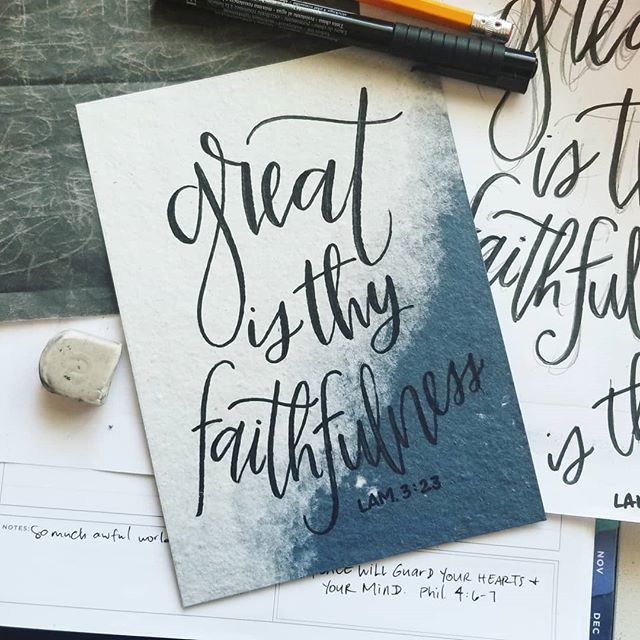 great
is thy
faithfulness
LAM. 3:23
great
is th
faithful
is th
LAM
NOTES: So much awful world
WILL GUARD YOUR HEARTS +
YOUR MIND. Phil 4:6-7
NOV
DEC